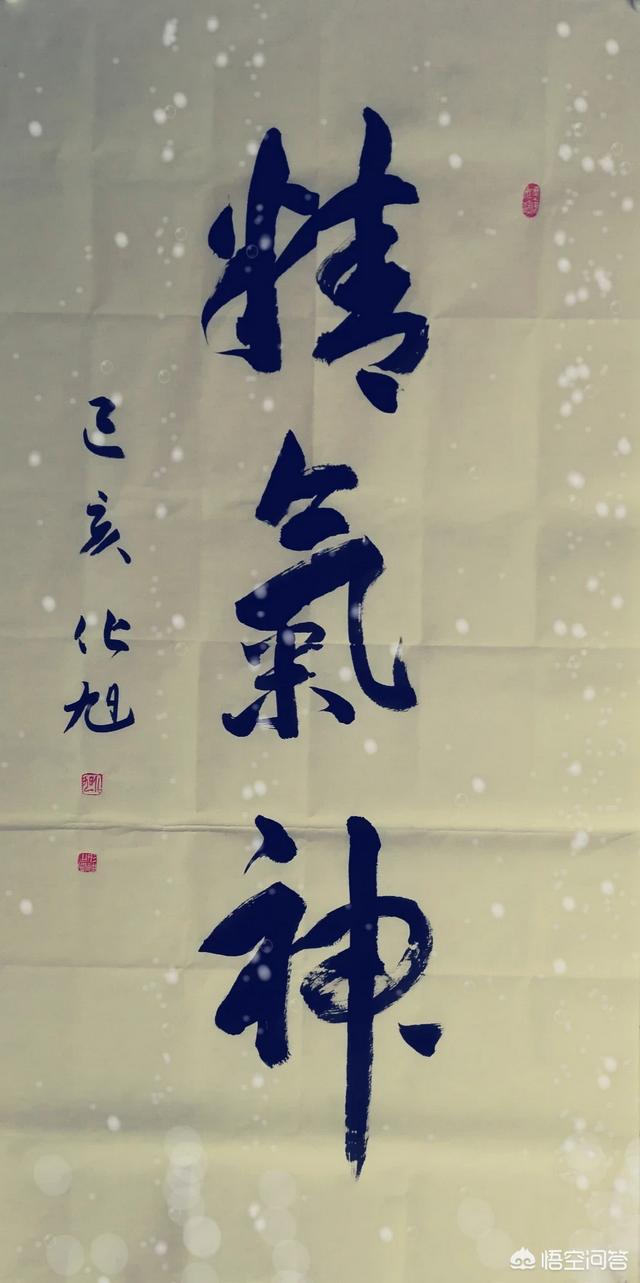 精氣神
己亥 化旭
悟空问答